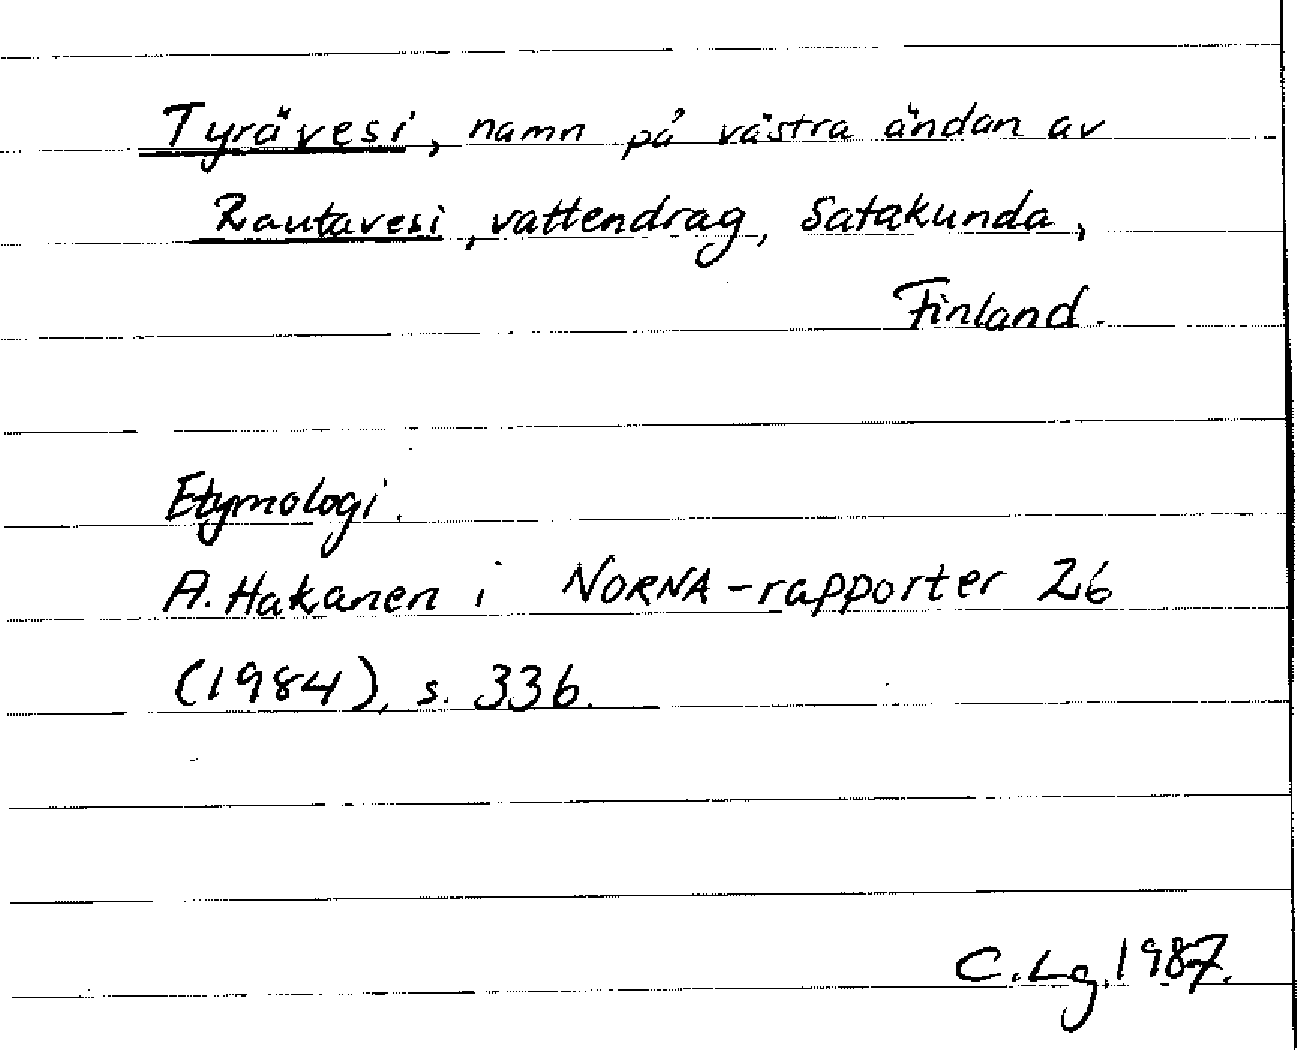 Tyrävesi, namn på västra ändan av
Rautavesi, vattendrag, Satakunda,
Finland.
Etymologi.
A. Hakanen i NORNA-rapporter 26
(1984), s. 336.
C. Lg, 1987.